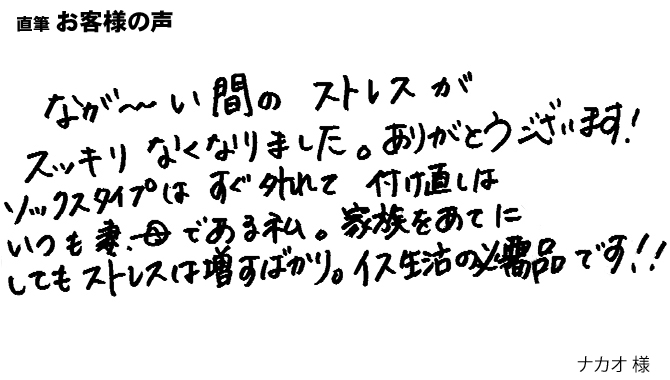 直筆 お客様の声
なが〜い間の ストレスが
スッキリ なくなりました。ありがとうございます!
ソックスタイプは すぐ外れて 付け直しは
いつも妻、母である私。家族をあてに
してもストレスは増すばかり。イス生活の必需品です!!
ナカオ 様